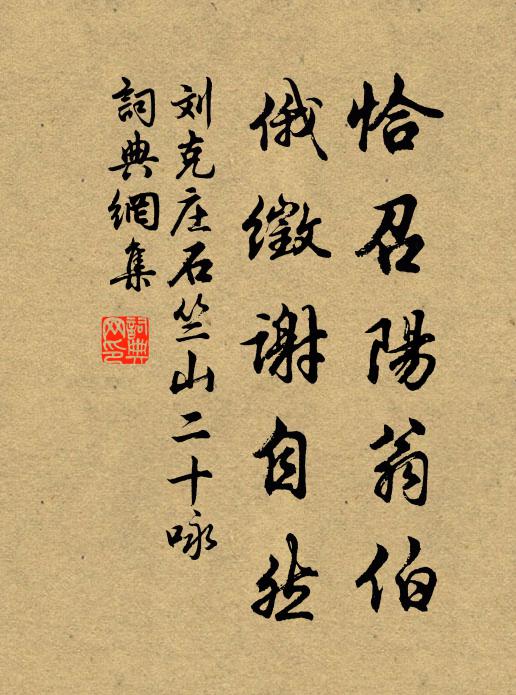 恰召陽翁伯
俄徵謝自然
刘克庄石竺山二十咏
詞典網集
詞典网印